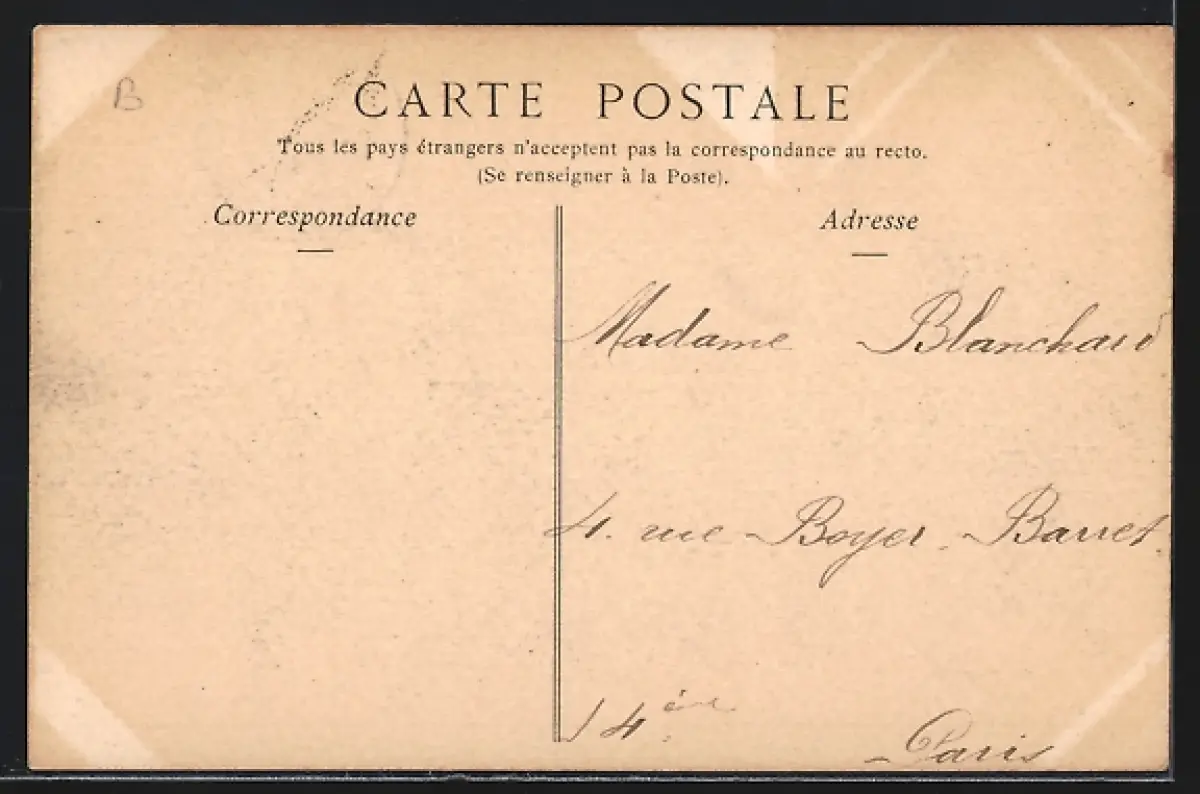 B
CARTE POSTALE
Tous les pays étrangers n'acceptent pas la correspondance au recto.
(Se renseigner à la Poste).
Correspondance
Adresse
Madame Blanchard
4. rue Boyer-Barret
14ème
Paris